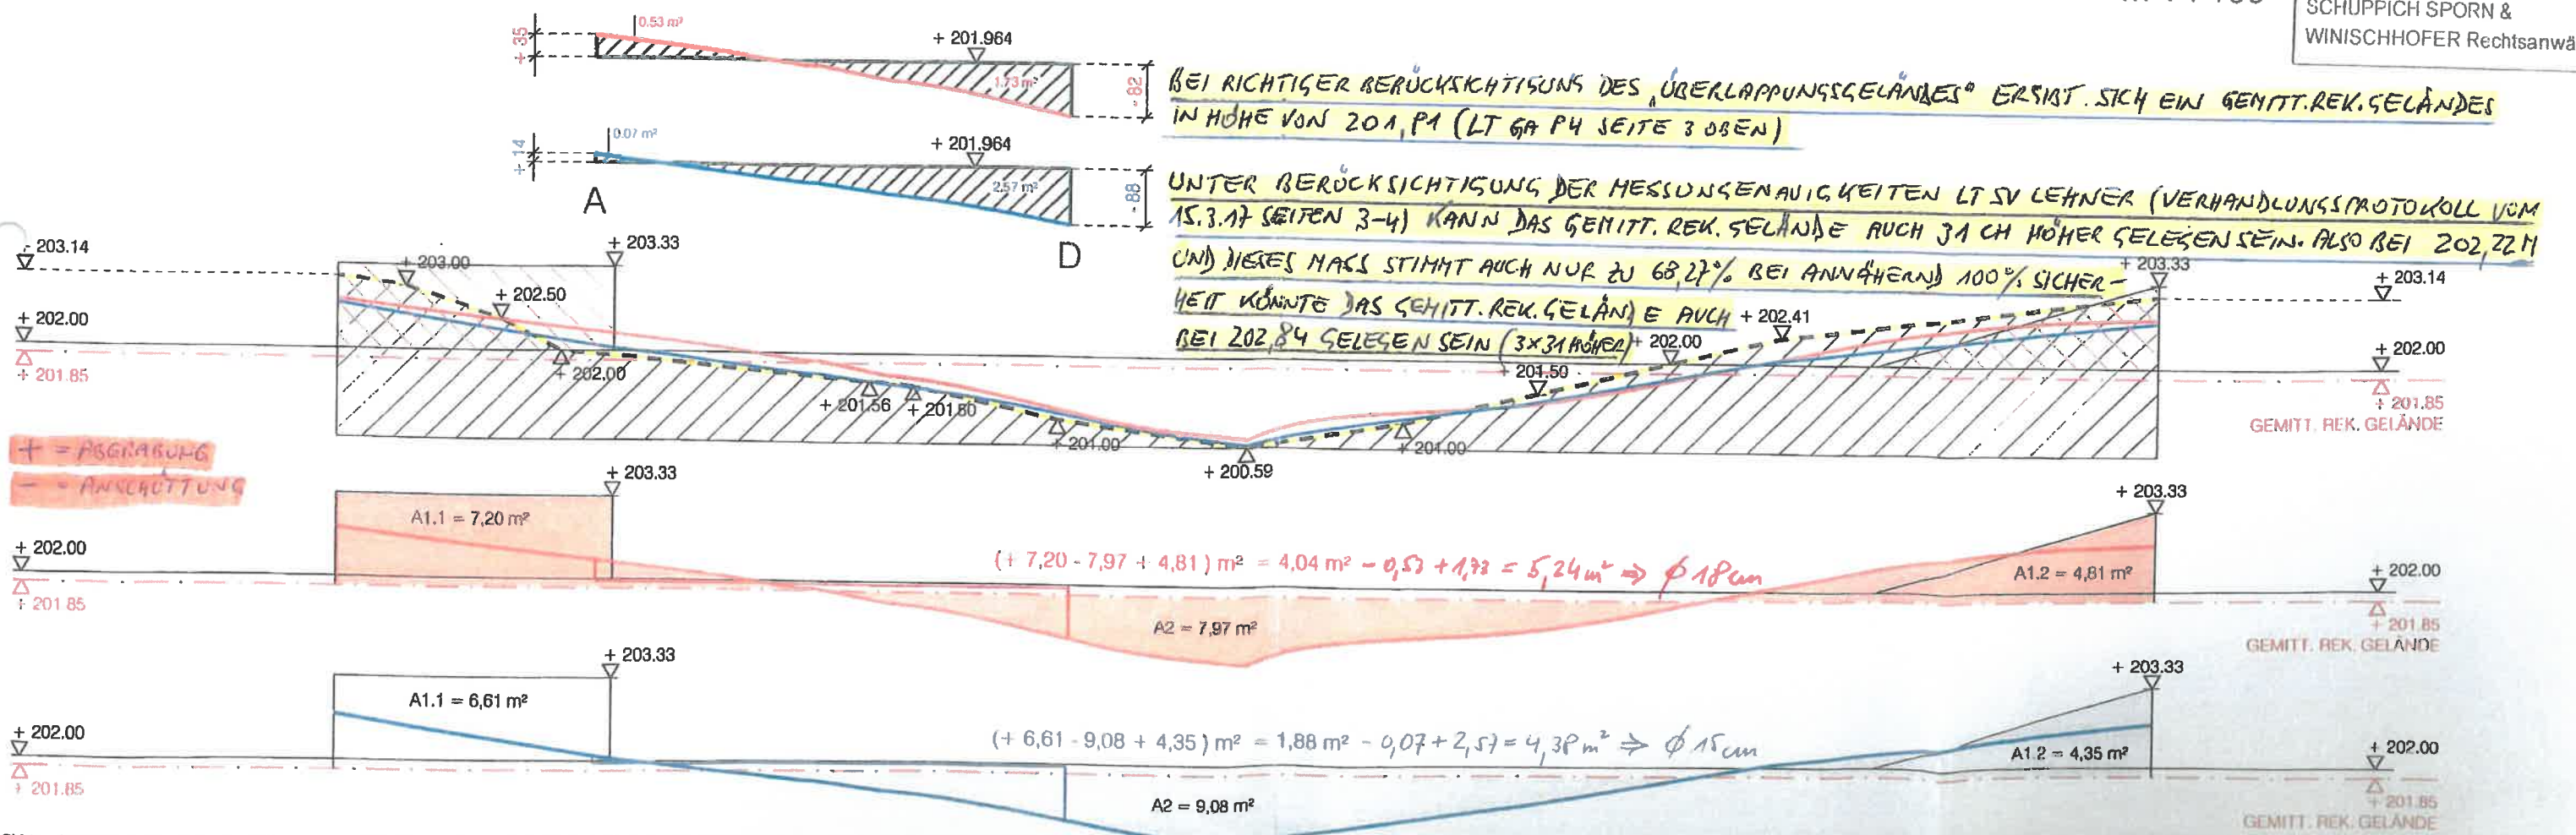 SCHUPPICH SPORN &
WINISCHHOFER Rechtsanwä
+ 35
0.53 m²
+ 201.964
1.73 m²
- 82
BEI RICHTIGER BERÜCKSICHTIGUNG DES „ÜBERLAPPUNGSGELÄNDES“ ERGIBT SICH EIN GEMITT. REK. GELÄNDES
IN HÖHE VON 201,91 (LT GA P4 SEITE 3 OBEN)
+ 14
0.07 m²
+ 201.964
2.57 m²
- 88
A
D
UNTER BERÜCKSICHTIGUNG DER MESSUNGENAUIGKEITEN LT SV LEHNER (VERHANDLUNGSPROTOKOLL VOM
15.3.17 SEITEN 3-4) KANN DAS GEMITT. REK. GELÄNDE AUCH 31 CM HÖHER GELEGEN SEIN. ALSO BEI 202,22 M
UND DIESES MASS STIMMT AUCH NUR ZU 68,27% BEI ANNÄHERND 100% SICHER-
HEIT KÖNNTE DAS GEMITT. REK. GELÄNDE AUCH
BEI 202,84 GELEGEN SEIN (3x31 HÖHER)
203.14
+ 203.33
+ 203.00
+ 202.50
+ 202.00
+ 201.85
+ 202.00
+ 201.56
+ 201.60
+ 201.00
+ 200.59
+ 201.00
201.50
+ 202.00
+ 202.41
+ 203.33
+ 203.14
+ 202.00
+ 201.85
GEMITT. REK. GELÄNDE
+ = ABGRABUNG
- = ANSCHÜTTUNG
+ 203.33
+ 203.33
A1.1 = 7,20 m²
+ 202.00
+ 201.85
(+ 7,20 - 7,97 + 4,81 ) m² = 4,04 m² - 0,53 + 1,73 = 5,24 m² ⇒ ϕ 18 cm
A2 = 7,97 m²
A1.2 = 4,81 m²
+ 202.00
+ 201.85
GEMITT. REK. GELÄNDE
+ 203.33
+ 203.33
A1.1 = 6,61 m²
+ 202.00
+ 201.85
(+ 6,61 - 9,08 + 4,35 ) m² = 1,88 m² - 0,07 + 2,57 = 4,38 m² ⇒ ϕ 15 cm
A2 = 9,08 m²
A1.2 = 4,35 m²
+ 202.00
+ 201.85
GEMITT. REK. GELÄNDE